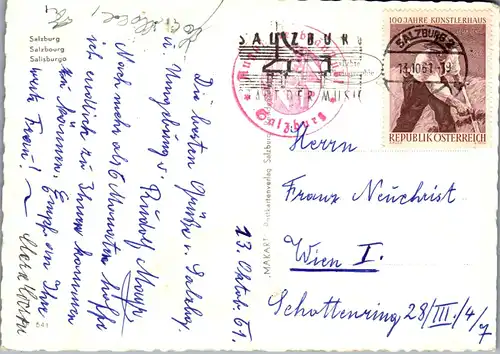 Salzburg
Salzbourg
Salisburgo
Die besten Grüße v. Salzbg.
u. Umgebung v. Rudolf Mayr
Nach mehr als 6 Monaten hoffe
ich endlich zu Ihnen kommen
zu können. Empf. an Ihre
werte Frau!
13. Oktob. 61.
541
"MAKART" Postkartenverlag Salzburg
SALZBURG
STADT DER MUSIK
Salzburg
SALZBURG 2
13.10.61-19
100 JAHRE KÜNSTLERHAUS
REPUBLIK ÖSTERREICH
Herrn
Franz Neuchrist
Wien I.
Schottenring 28/III./4/7